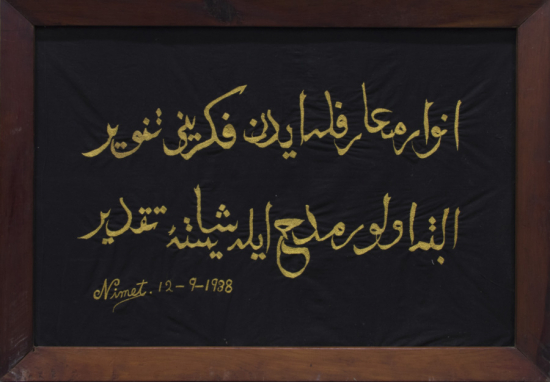 انوار معارفله ایدن فکرینی تنویر
البته اولور مدح ایله شایسته تقدیر
Nimet. 12-9-1938